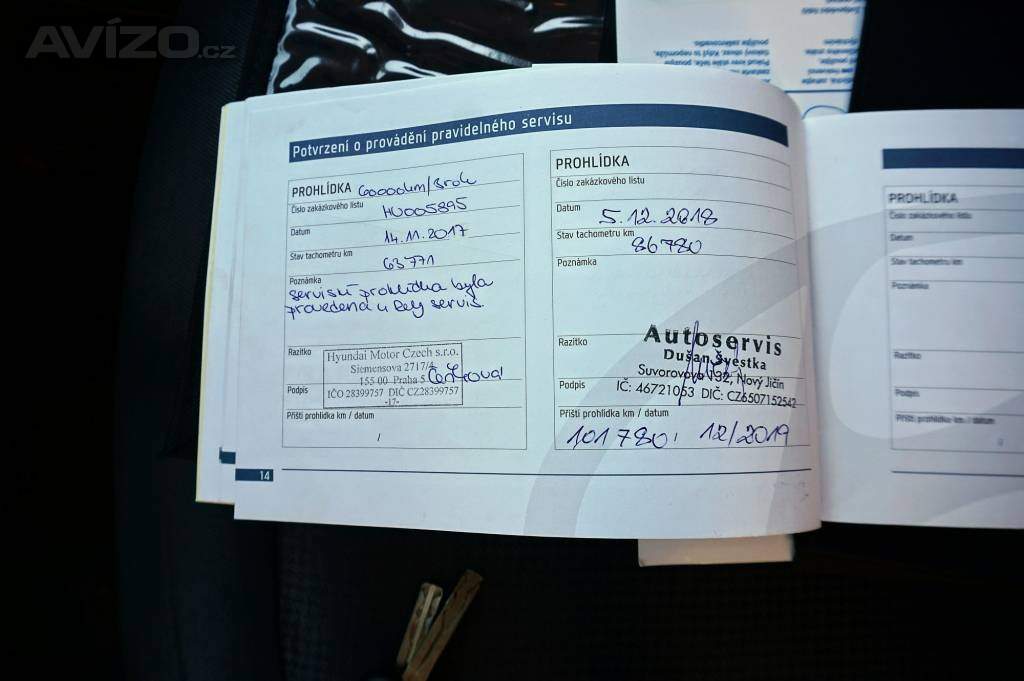 AVÍZO.cz
Potvrzení o provádění pravidelného servisu
PROHLÍDKA 60000km/3rok
Číslo zakázkového listu
HU005895
Datum
14.11.2017
Stav tachometru km
63771
Poznámka
servisní prohlídka byla
provedena u Bely servis
Razítko
Hyundai Motor Czech s.r.o.
Siemensova 2717/4
155 00 Praha 5
Podpis
IČO 28399757 DIČ CZ28399757
-17-
Příští prohlídka km / datum
/
14
PROHLÍDKA
Číslo zakázkového listu
Datum
5.12.2018
Stav tachometru km
86780
Poznámka
Razítko
Autoservis
Dušan Švestka
Suvorovova 132, Nový Jičín
Podpis
IČ: 46721053 DIČ: CZ6507152542
Příští prohlídka km / datum
101780, 12/2019
PROHLÍDKA
Číslo zakázkového listu
Datum
Stav tachometru km
Poznámka
Razítko
Podpis
Příští prohlídka km / datum